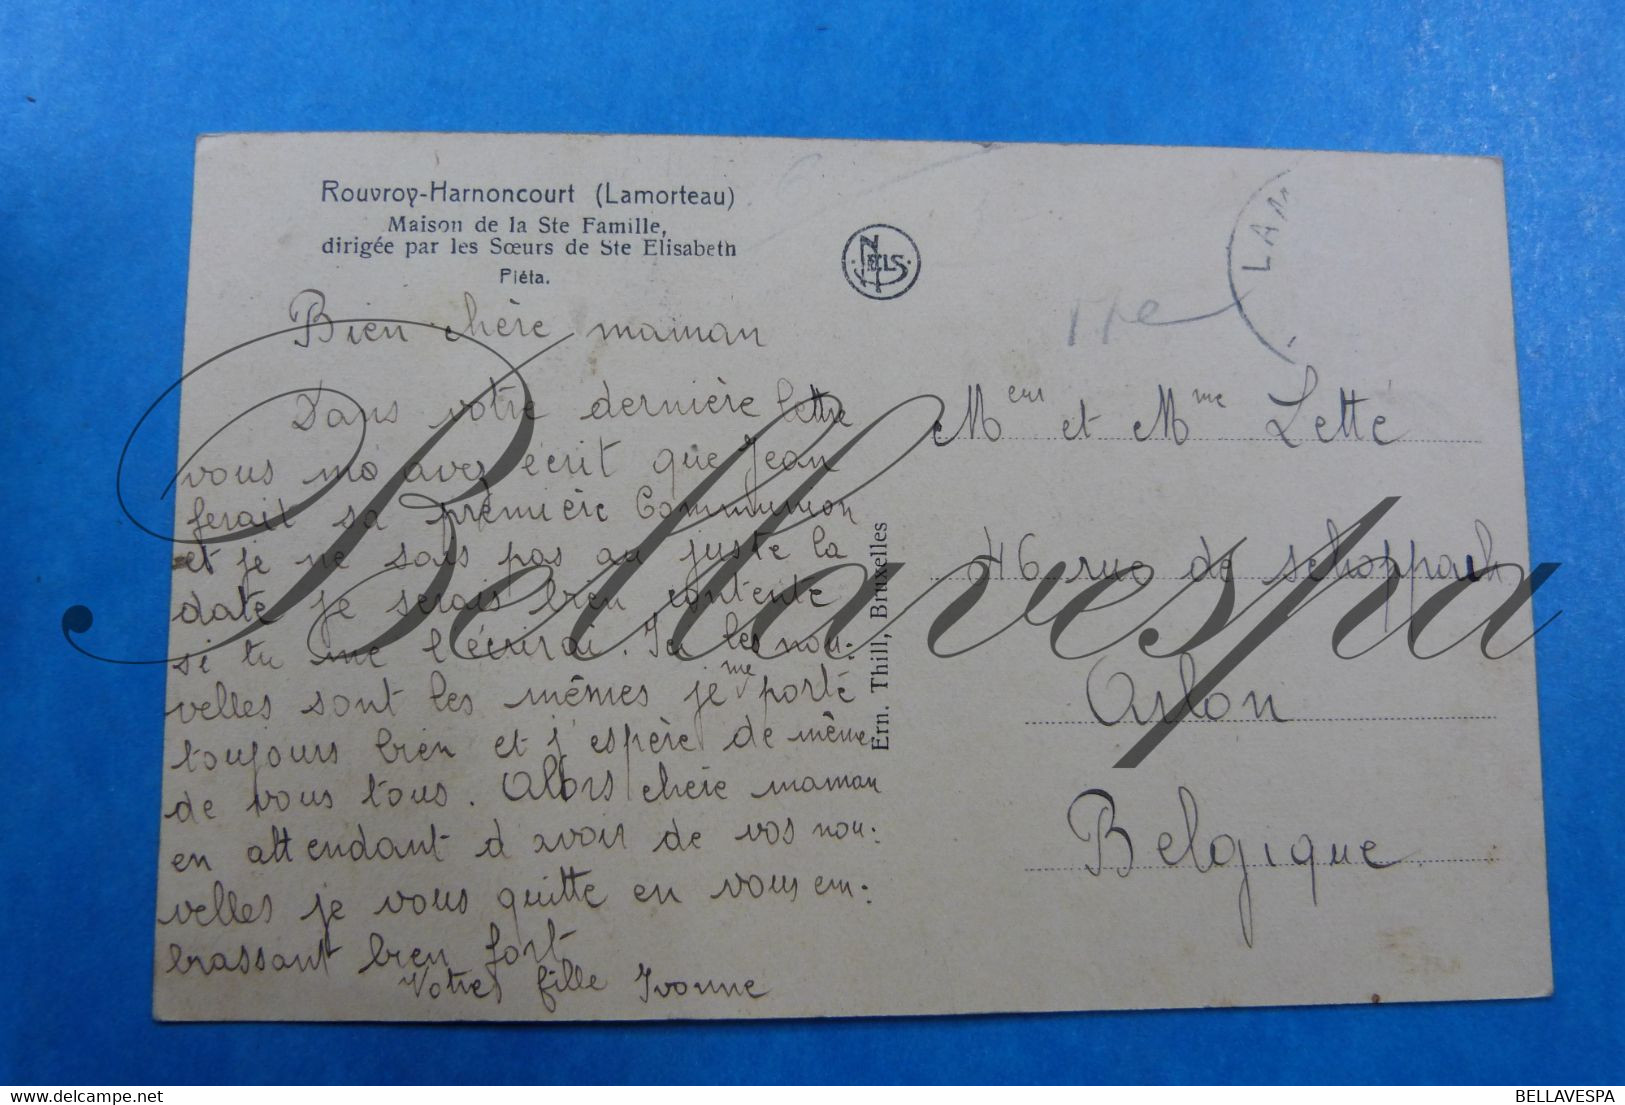 Rouvroy-Harnoncourt (Lamorteau)
Maison de la Ste Famille,
dirigée par les Sœurs de Ste Elisabeth
Piéta.
Bien chère maman
Dans votre dernière lettre
vous mo avez écrit que Jean
ferait sa première Communion
et je ne sais pas au juste la
date je serais bien contente
si tu me l'écrirai. Ici les nou:
velles sont les mêmes je me porte
toujours bien et j'espère de même
de vous tous. Alors chère maman
en attendant d avoir de vos nou:
velles je vous quitte en vous em:
brassant bien fort
Votre fille Ivonne
NELS
Ern. Thill, Bruxelles
LAM
Meur et Mme Lette
46 rue de schoppach
Arlon
Belgique
Bellavespa
BELLAVESPA